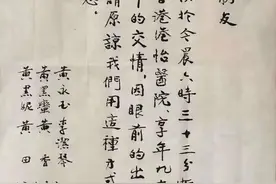 朋友
於今晨六時三十三分
香港港怡醫院，享年九
的交情，因眼前的出
請原諒我們用這種方式
意。
黃永玉 李潔琴
黃黑蠻 黃香
黃黑妮 黃田